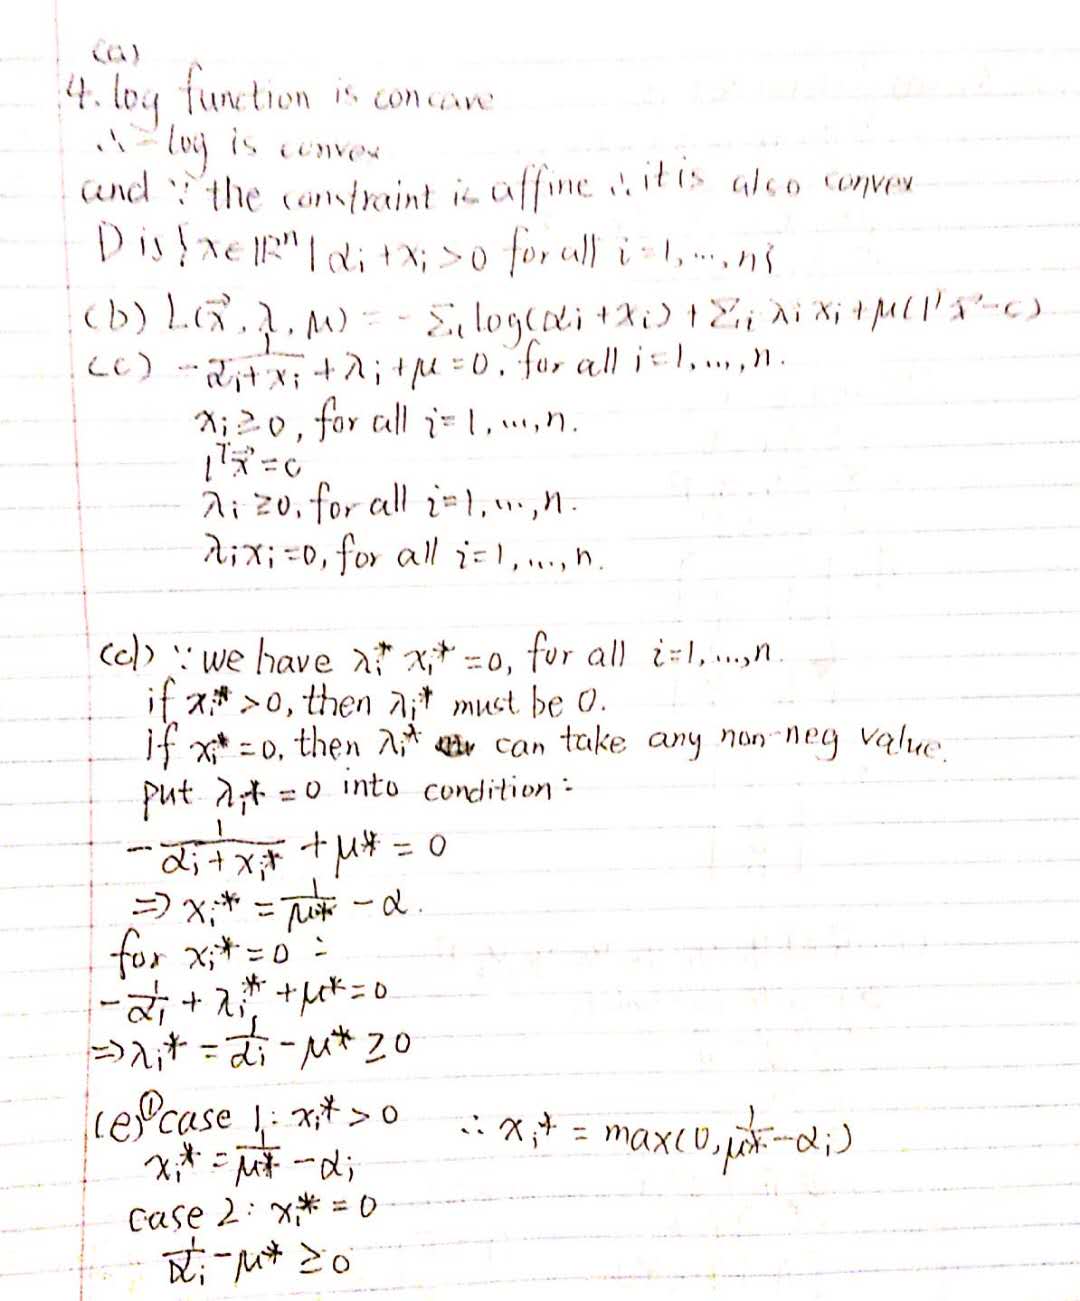 (a)
4. log function is concave
∴ -log is convex
and ∵ the constraint is affine ∴ it is also convex
D is {x∈ℝⁿ | αi + xi > 0 for all i=1,...,n}
(b) L(x⃗, λ, μ) = - Σi log(αi + xi) + Σi λi xi + μ(1ᵀx⃗ - c)
(c) - 1/(αi + xi) + λi + μ = 0, for all i=1,...,n.
xi ≥ 0, for all i=1,...,n.
1ᵀx⃗ = c
λi ≥ 0, for all i=1,...,n.
λixi = 0, for all i=1,...,n.
(d) ∵ we have λi* xi* = 0, for all i=1,...,n.
if xi* > 0, then λi* must be 0.
if xi* = 0, then λi* can take any non-neg value.
put λi* = 0 into condition:
- 1/(αi + xi*) + μ* = 0
⇒ xi* = 1/μ* - α.
for xi* = 0:
- 1/αi + λi* + μ* = 0
⇒ λi* = 1/αi - μ* ≥ 0
(e) ① case 1: xi* > 0 ∴ xi* = max(0, 1/μ* - αi)
xi* = 1/μ* - αi
case 2: xi* = 0
1/αi - μ* ≥ 0